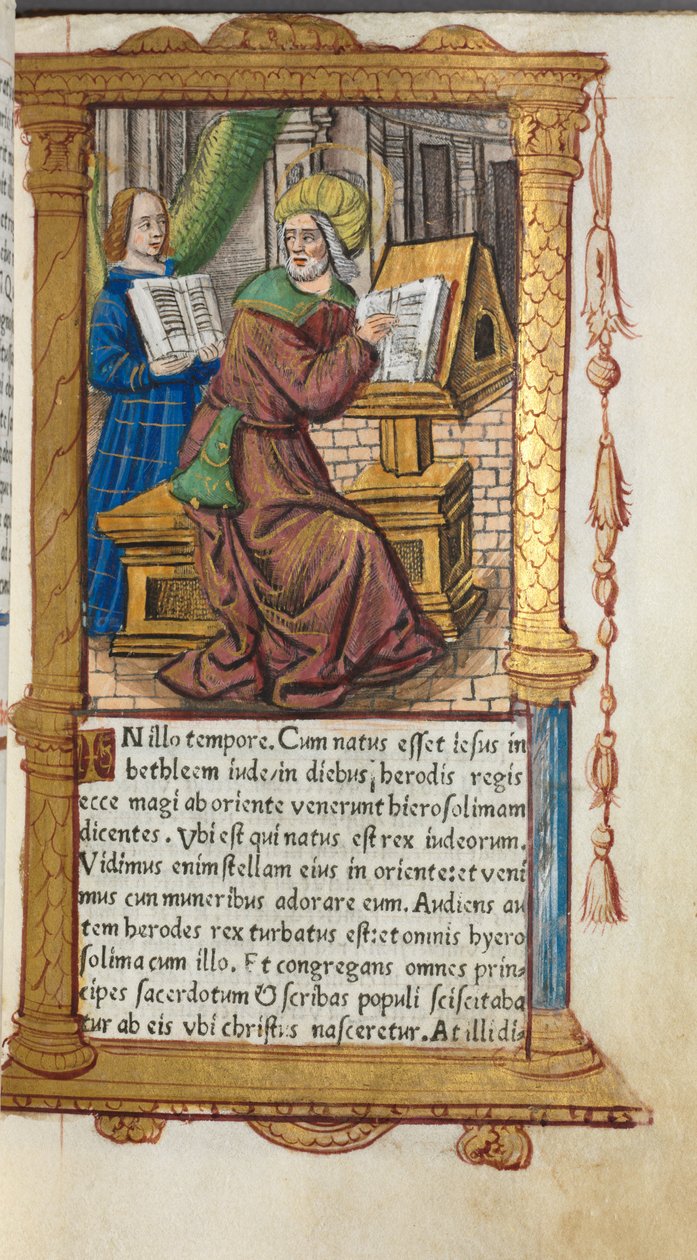 IN illo tempore. Cum natus esset iesus in
bethleem iude/in diebus herodis regis
ecce magi ab oriente venerunt hierosolimam
dicentes. Vbi est qui natus est rex iudeorum.
Vidimus enim stellam eius in oriente:et veni
mus cun muneribus adorare eum. Audiens au
tem herodes rex turbatus est:et omnis hyero
solima cum illo. Et congregans omnes prin-
cipes sacerdotum & scribas populi sciscitaba
tur ab eis vbi christus nasceretur. At illi di-